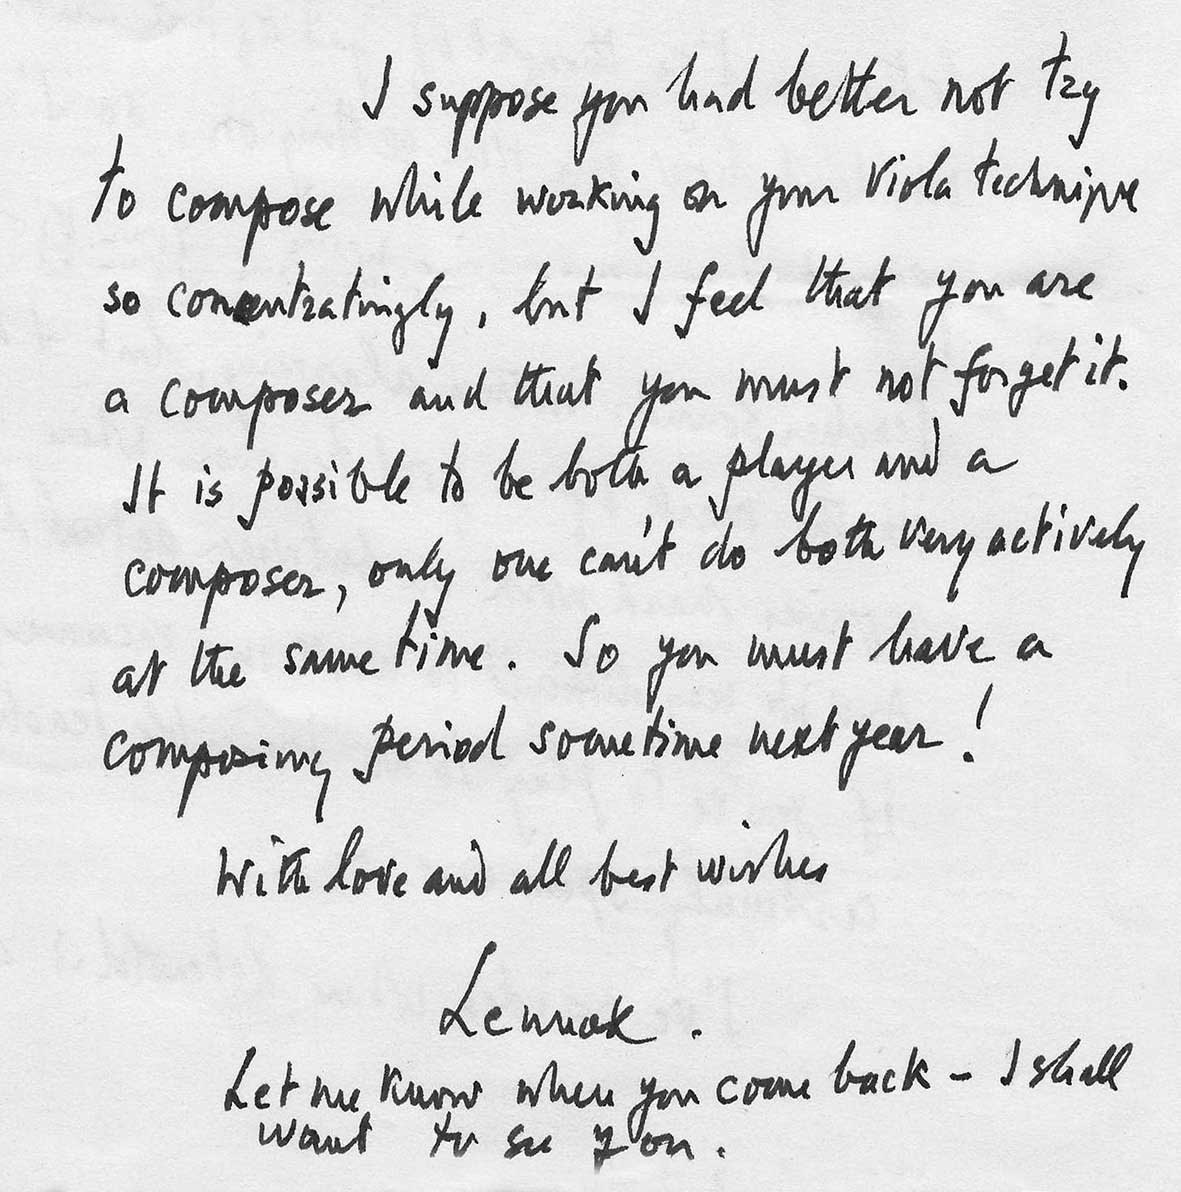 I suppose you had better not try
to compose while working on your Viola technique
so concentratingly, but I feel that you are
a composer and that you must not forget it.
It is possible to be both a player and a
composer, only one can't do both very actively
at the same time. So you must have a
composing period sometime next year!
With love and all best wishes
Lennox.
Let me know when you come back – I shall
want to see you.